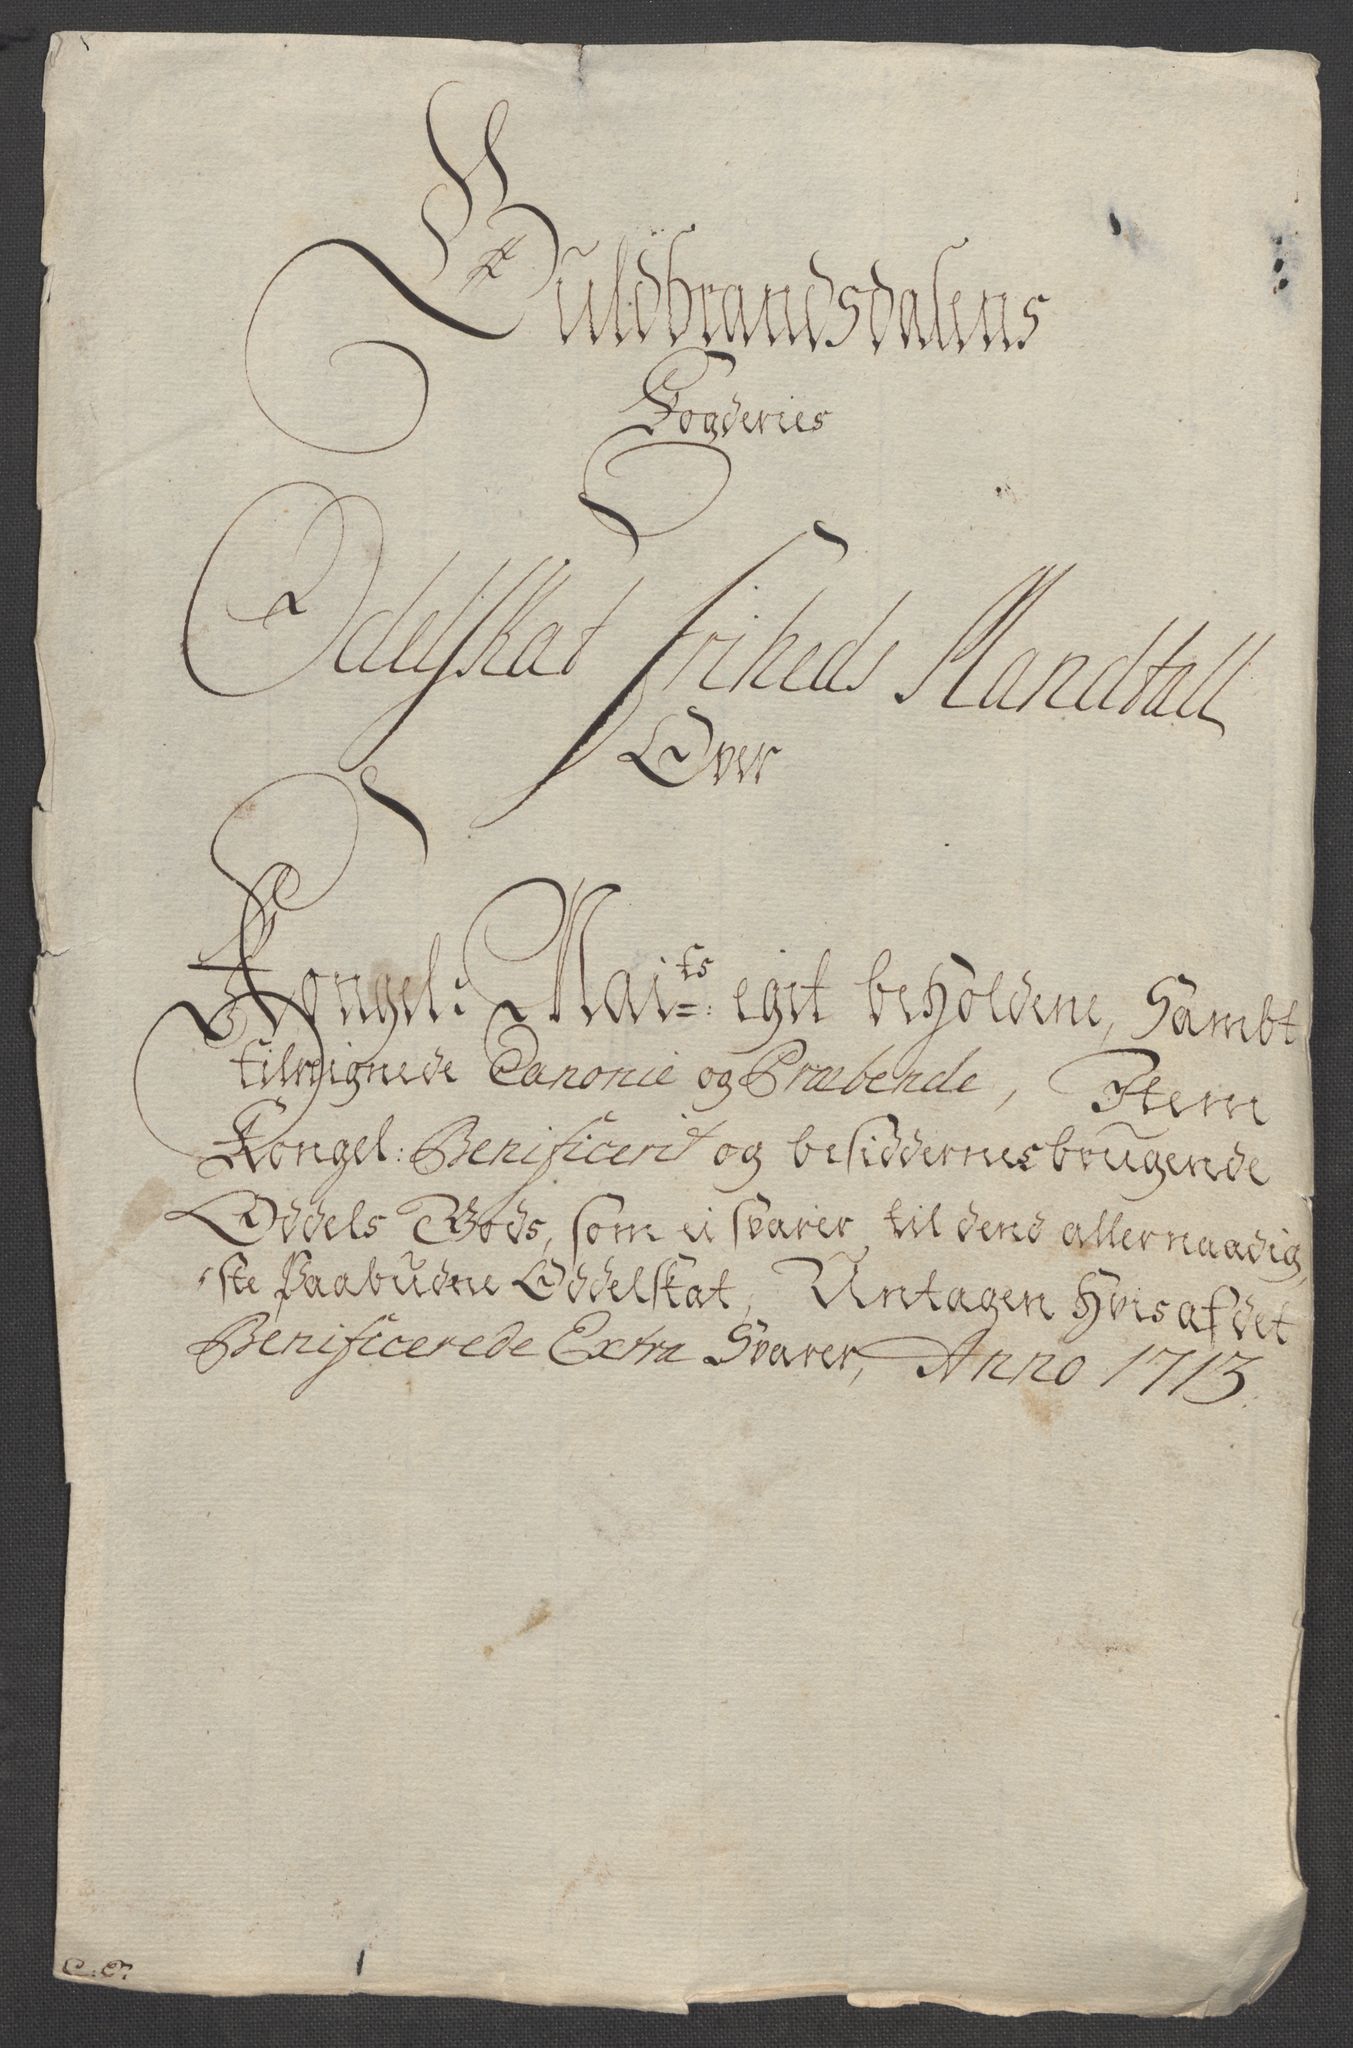 Guldbrandsdalens
Fogderies
Odelskat friheds Mandtall
Over
Kongel: Mai^ts: egit beholdene, Sambt
tileignede Canonie og Præbende, Item
Kongel: Benificerit og besiddernes brugende
Oddels Gods, som ei svarer til dend allernaadig,
ste Paabudne Oddelskat, Untagen hvis af det
Benificerede Extra Svarer, Anno 1713.